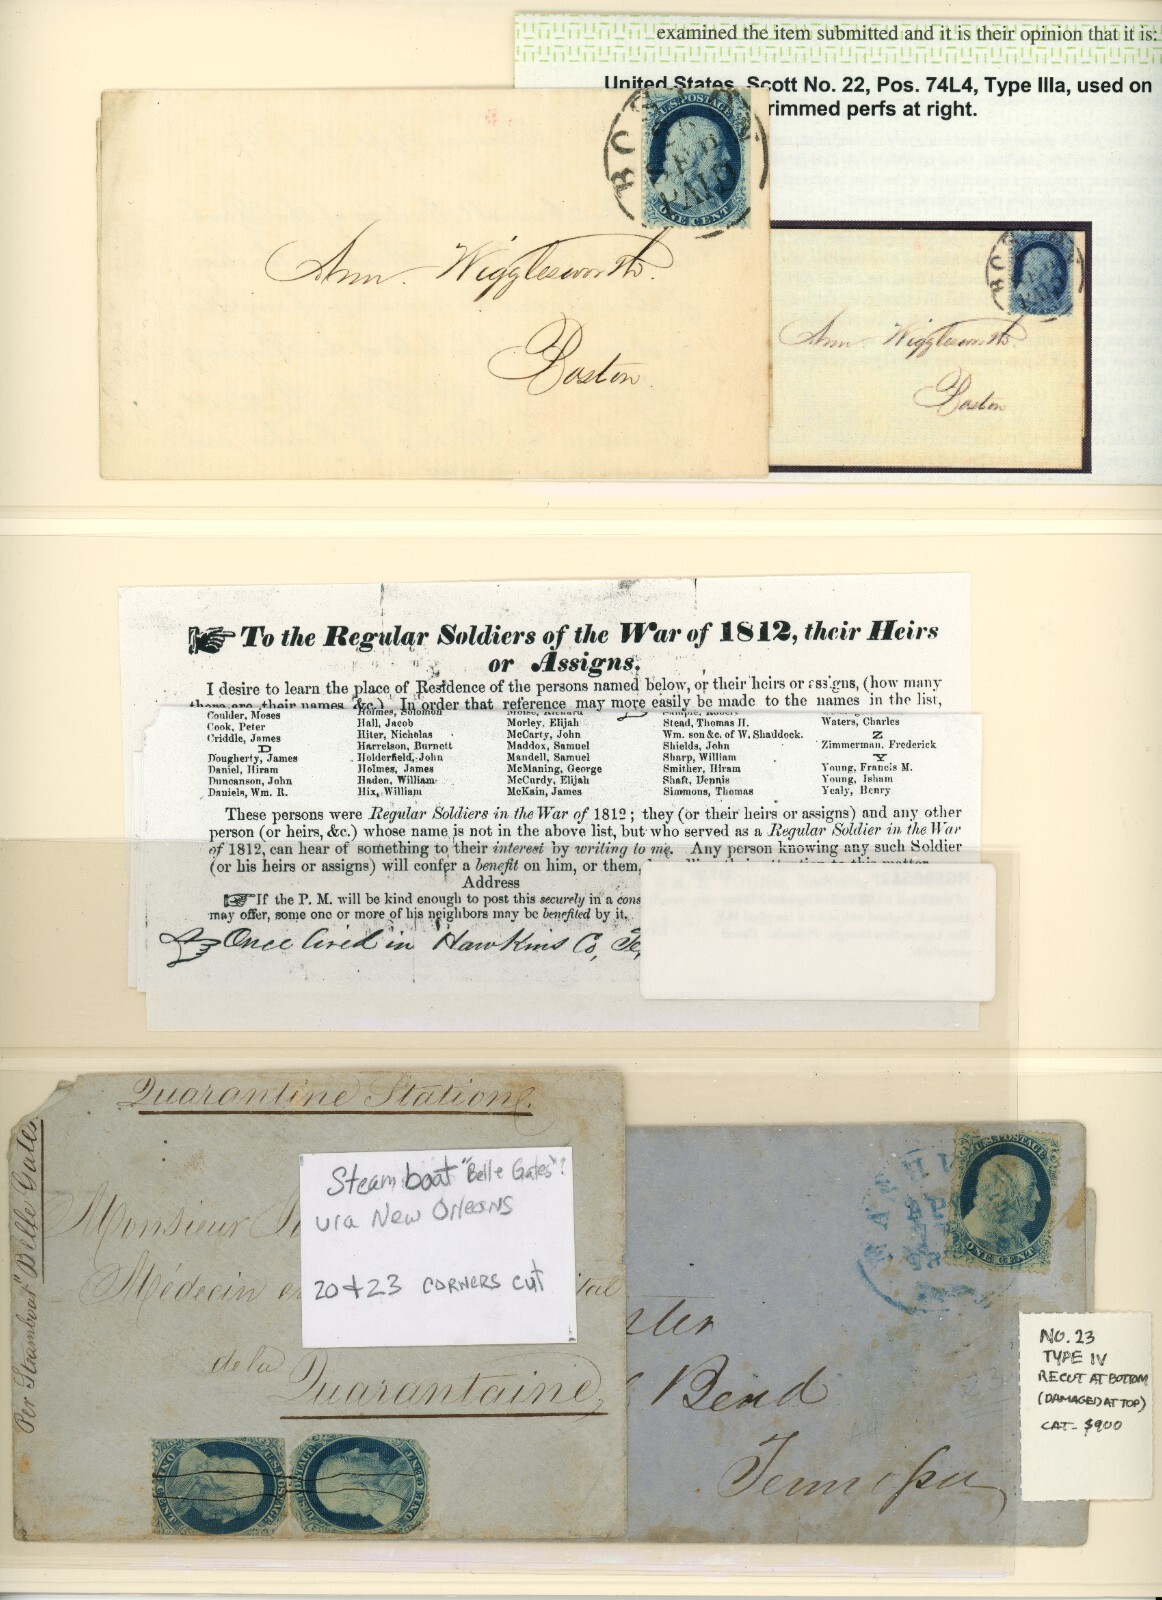 examined the item submitted and it is their opinion that it is:
United States, Scott No. 22, Pos. 74L4, Type IIIa, used on
rimmed perfs at right.
BOSTON
FEB
PAID
U.S. POSTAGE
ONE CENT
Ann Wigglesworth.
Boston.
Ann Wigglesworth.
Boston
To the Regular Soldiers of the War of 1812, their Heirs
or Assigns.
I desire to learn the place of Residence of the persons named below, or their heirs or assigns, (how many
there are, their names &c.) In order that reference may more easily be made to the names in the list,
Coulder, Moses
Cook, Peter
Criddle, James
D
Dougherty, James
Daniel, Hiram
Duncanson, John
Daniels, Wm. R.
Holmes, Solomon
Hall, Jacob
Hiter, Nicholas
Harrelson, Burnett
Holderfield, John
Holmes, James
Haden, William
Hix, William
Morley, Elijah
McCarty, John
Maddox, Samuel
Mandell, Samuel
McManing, George
McCurdy, Elijah
McKain, James
Stead, Thomas H.
Wm. son &c. of W. Shaddock.
Shields, John
Sharp, William
Smither, Hiram
Shaft, Dennis
Simmons, Thomas
Waters, Charles
Z
Zimmerman, Frederick
Y
Young, Francis M.
Young, Isham
Yealy, Benry
These persons were Regular Soldiers in the War of 1812; they (or their heirs or assigns) and any other
person (or heirs, &c.) whose name is not in the above list, but who served as a Regular Soldier in the War
of 1812, can hear of something to their interest by writing to me. Any person knowing any such Soldier
(or his heirs or assigns) will confer a benefit on him, or them,
Address
If the P. M. will be kind enough to post this securely in a cons
may offer, some one or more of his neighbors may be benefited by it.
Once lived in Hawkins Co, Te
Quarantine Station
Per Steamboat "Belle Gates"
Monsieur
Médecin en
tal
de la
Quarantaine
Steamboat "Belle Gates"!
via New Orleans
20 & 23 CORNERS CUT
U.S. POSTAGE
ONE CENT
U.S. POSTAGE
ONE CENT
U.S. POSTAGE
ONE CENT
Bend
Tennessee
NO. 23
TYPE IV
RECUT AT BOTTOM
(DAMAGED AT TOP)
CAT- $900